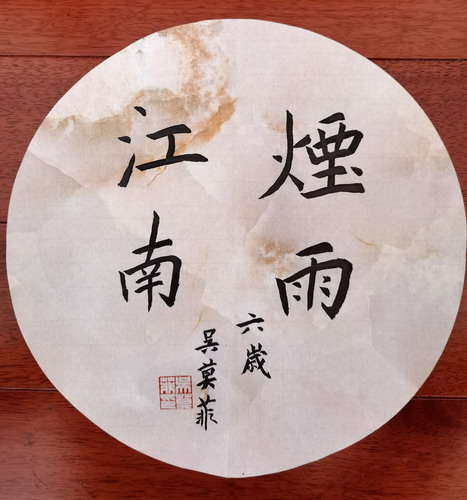 煙雨
江南
六歲
吳莫菲